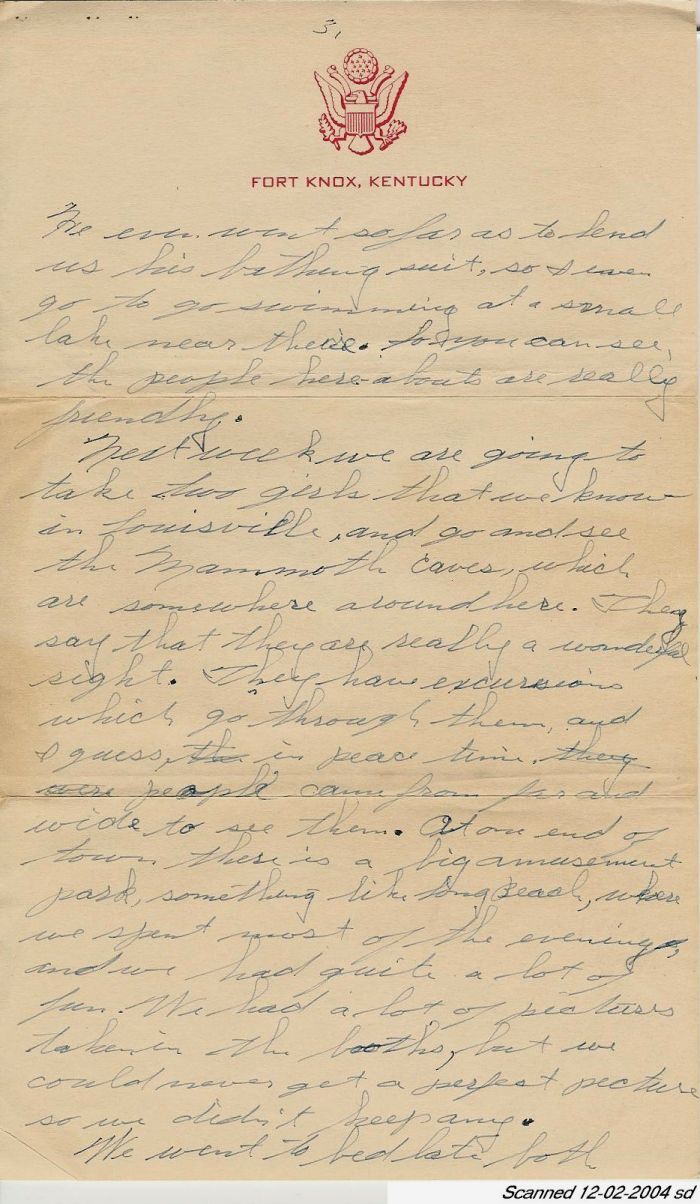 3.
FORT KNOX, KENTUCKY
He even went so far as to lend
us his bathing suit, so I even
go to go swimming at a small
lake near there. So you can see,
the people hereabouts are really
friendly.
Next week we are going to
take two girls that we know
in Louisville, and go and see
the Mammoth Caves, which
are somewhere around here. They
say that they are really a wonderful
sight. They have excursions
which go through them, and
I guess, the in peace time, they
were people came from far and
wide to see them. At one end of
town there is a big amusement
park, something like Long Beach, where
we spent most of the evenings,
and we had quite a lot of
fun. We had a lot of pictures
taken in the booths, but we
could never get a perfect pecture
so we didn't keep any.
We went to bed late both
Scanned 12-02-2004 sd